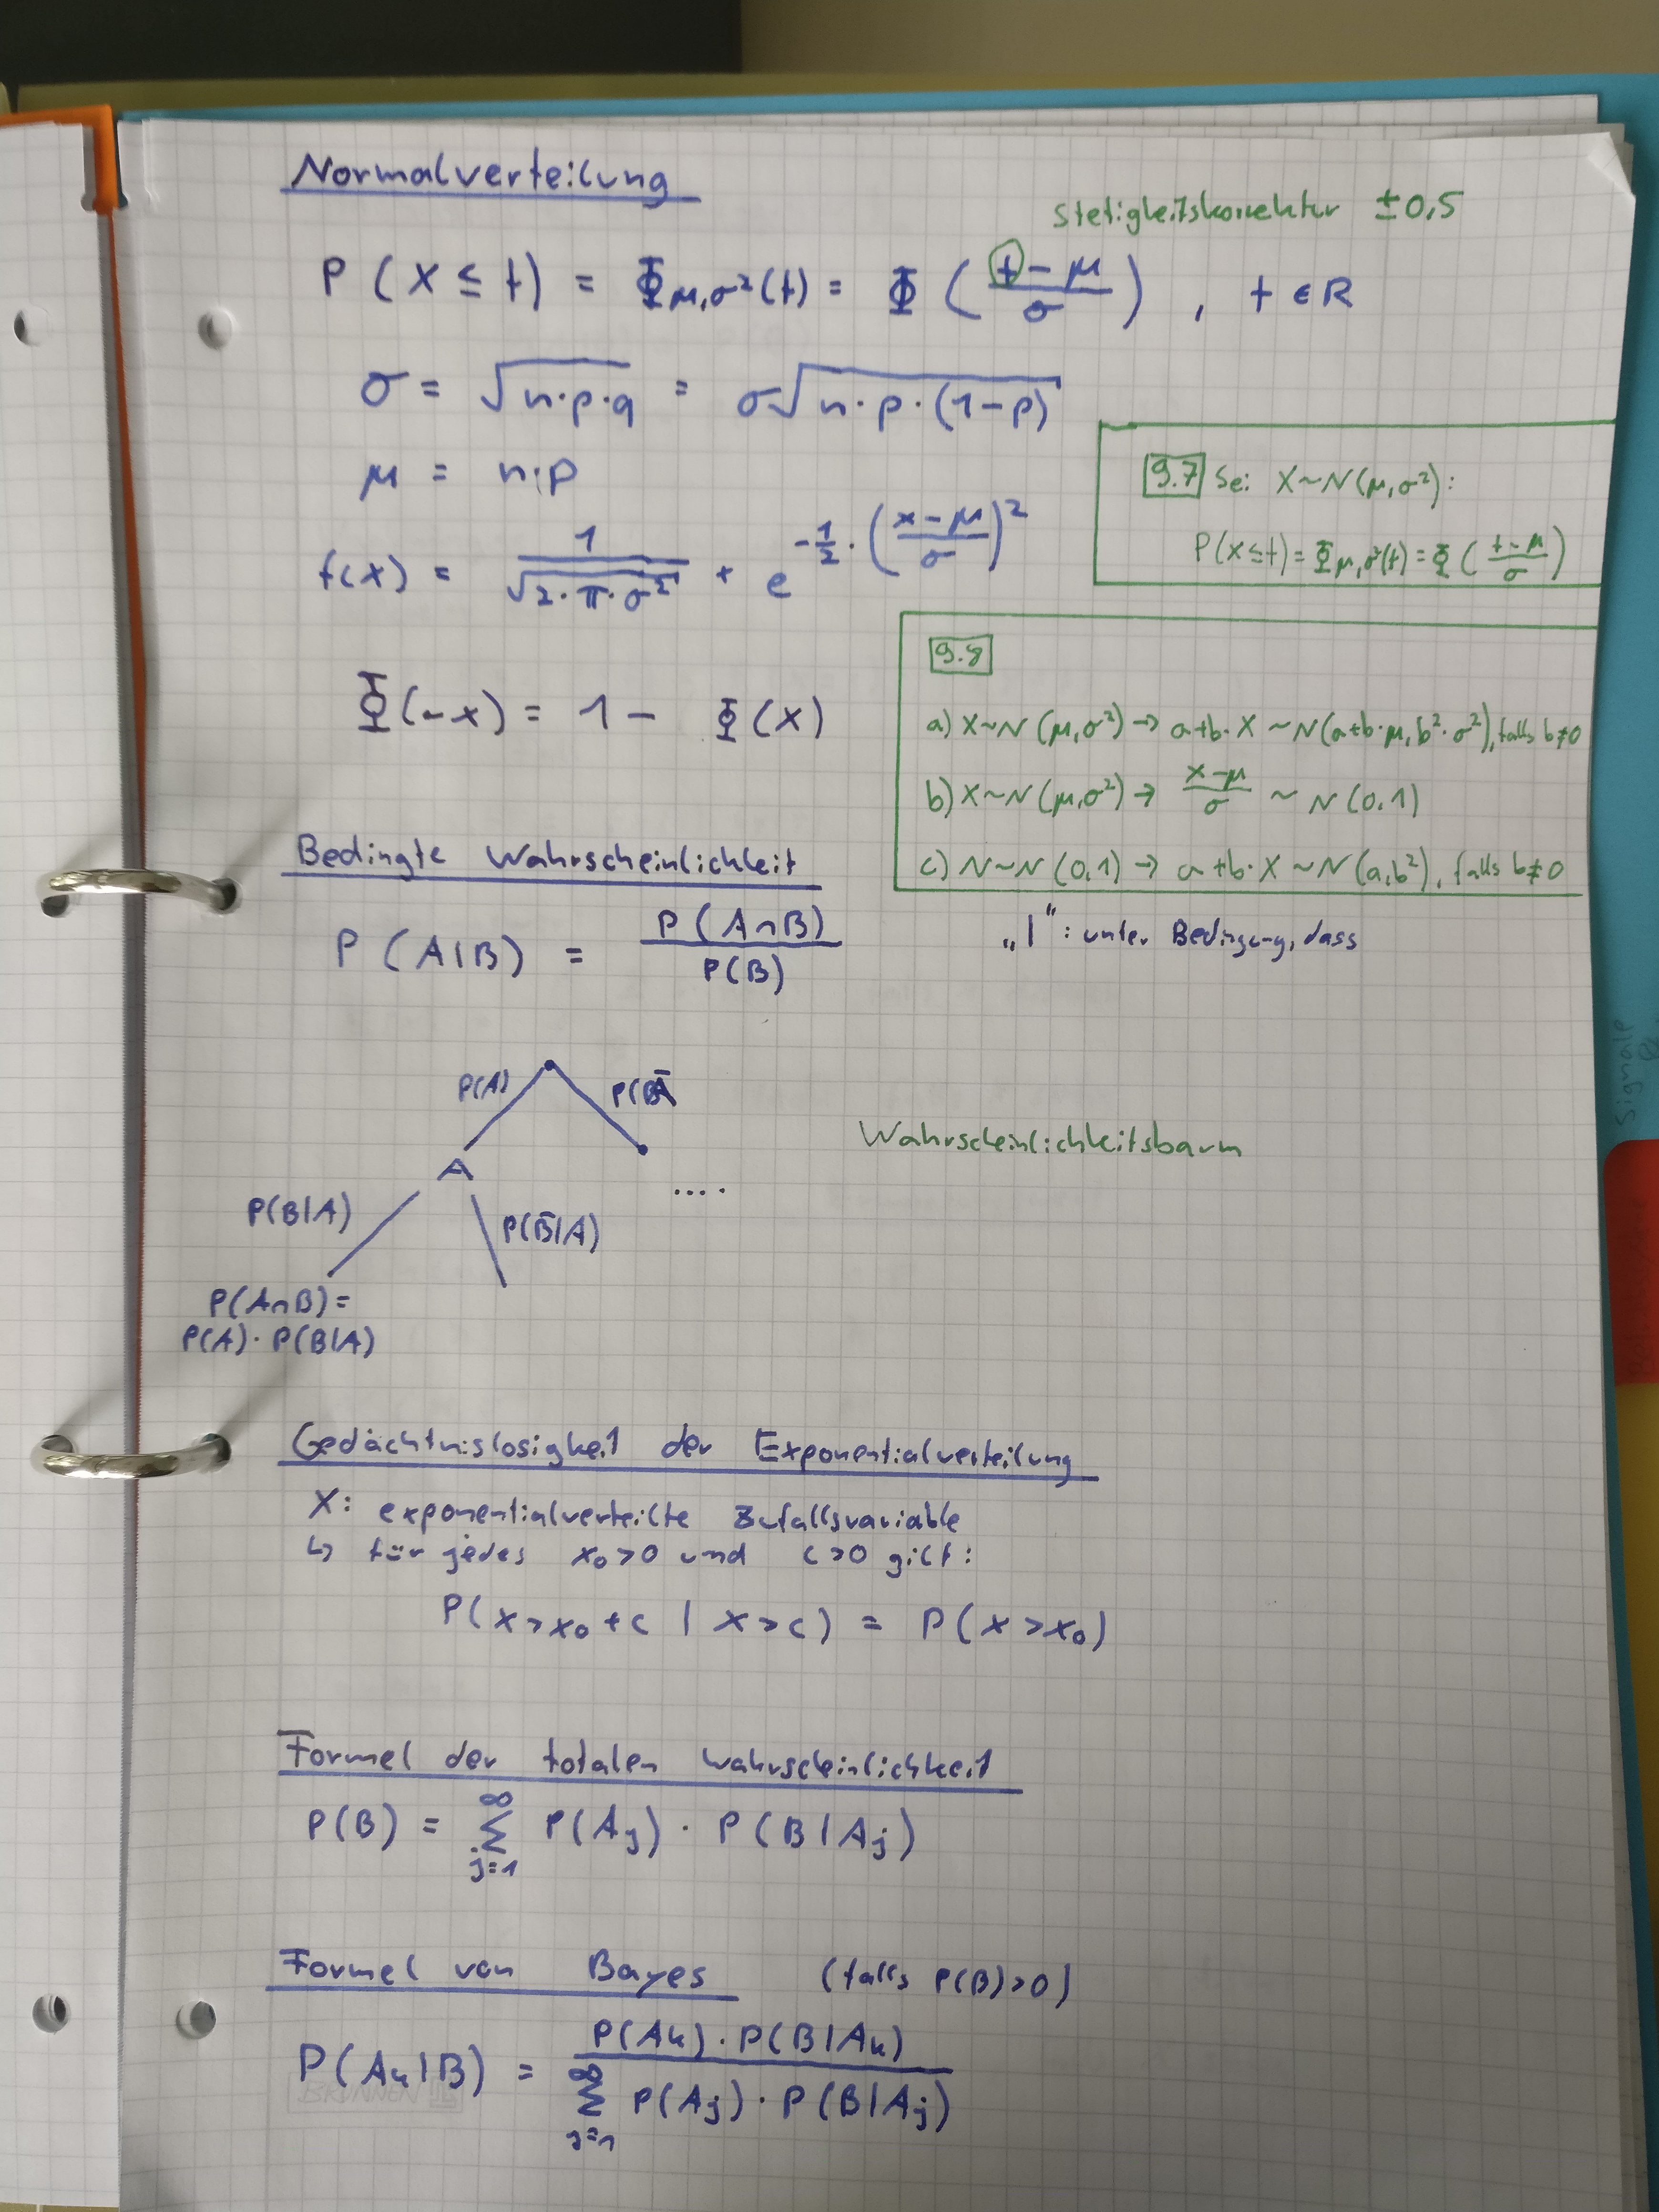 Normalverteilung
Stetigkeitskorrektur ±0,5
P(X ≤ t) = Φμ,σ²(t) = Φ((t-μ)/σ), t ∈ R
σ = √(n·p·q) = σ√(n·p·(1-p))
μ = n·p
9.7 Sei X~N(μ,σ²):
P(X≤t) = Φμ,σ²(t) = Φ((t-μ)/σ)
f(x) = 1/√(2·π·σ²) * e^(-1/2·((x-μ)/σ)²)
9.8
Φ(-x) = 1 - Φ(x)
a) X~N(μ,σ²) → a+b·X ~N(a+b·μ, b²·σ²), falls b≠0
b) X~N(μ,σ²) → (X-μ)/σ ~ N(0,1)
c) N~N(0,1) → a+b·X ~N(a,b²), falls b≠0
Bedingte Wahrscheinlichkeit
P(A|B) = P(A∩B)/P(B)
„|": unter Bedingung, dass
P(A) P(Ā
A
Wahrscheinlichkeitsbaum
....
P(B|A) P(B̄|A)
P(A∩B)=
P(A)·P(B|A)
Gedächtnislosigkeit der Exponentialverteilung
X: exponentialverteilte Zufallsvariable
↳ für jedes x₀>0 und c>0 gilt:
P(X>x₀+c | X>c) = P(X>x₀)
Formel der totalen Wahrscheinlichkeit
P(B) = ∞Σj=1 P(Aj)·P(B|Aj)
Formel von Bayes (falls P(B)>0)
P(Ak|B) = P(Ak)·P(B|Ak) / ∞Σj=1 P(Aj)·P(B|Aj)
BRUNNEN
Signale